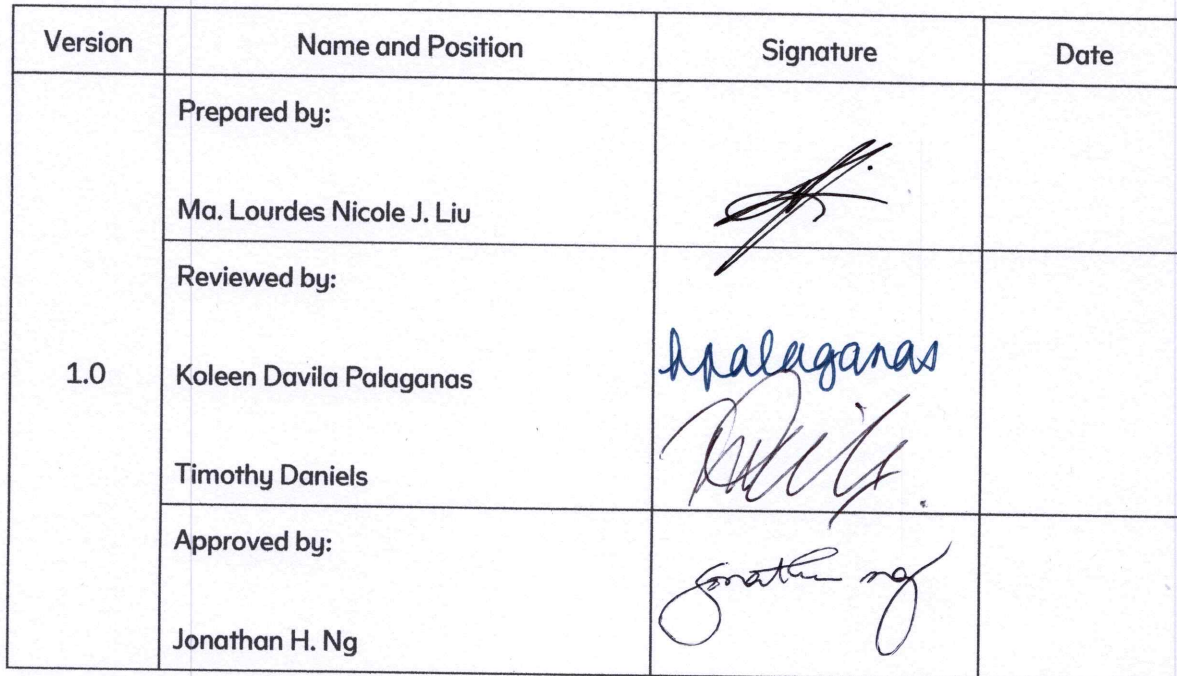 Version Name and Position Signature Date
Prepared by:
Ma. Lourdes Nicole J. Liu
Reviewed by:
1.0 Koleen Davila Palaganas kpalaganas
Timothy Daniels
Approved by:
jonathan ng
Jonathan H. Ng